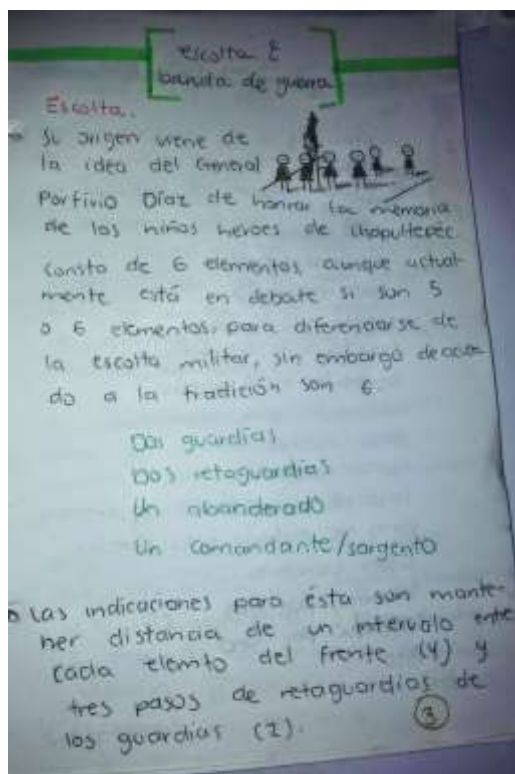 escolta &
banda de guerra
Escolta.
Su origen viene de
la idea del General
Porfirio Díaz de honrar la memoria
de los niños heroes de chapultepec.
Consta de 6 elementos, aunque actual-
mente está en debate si son 5
o 6 elementos, para diferenciarse de
la escolta militar, sin embargo deacuer-
do a la tradición son 6.
Dos guardias
Dos retaguardias
Un abanderado
Un comandante/sargento
Las indicaciones para ésta son mante-
ner distancia de un intervalo entre
cada elemto del frente (4) y
tres pasos de retaguardias de
los guardias (2).
3